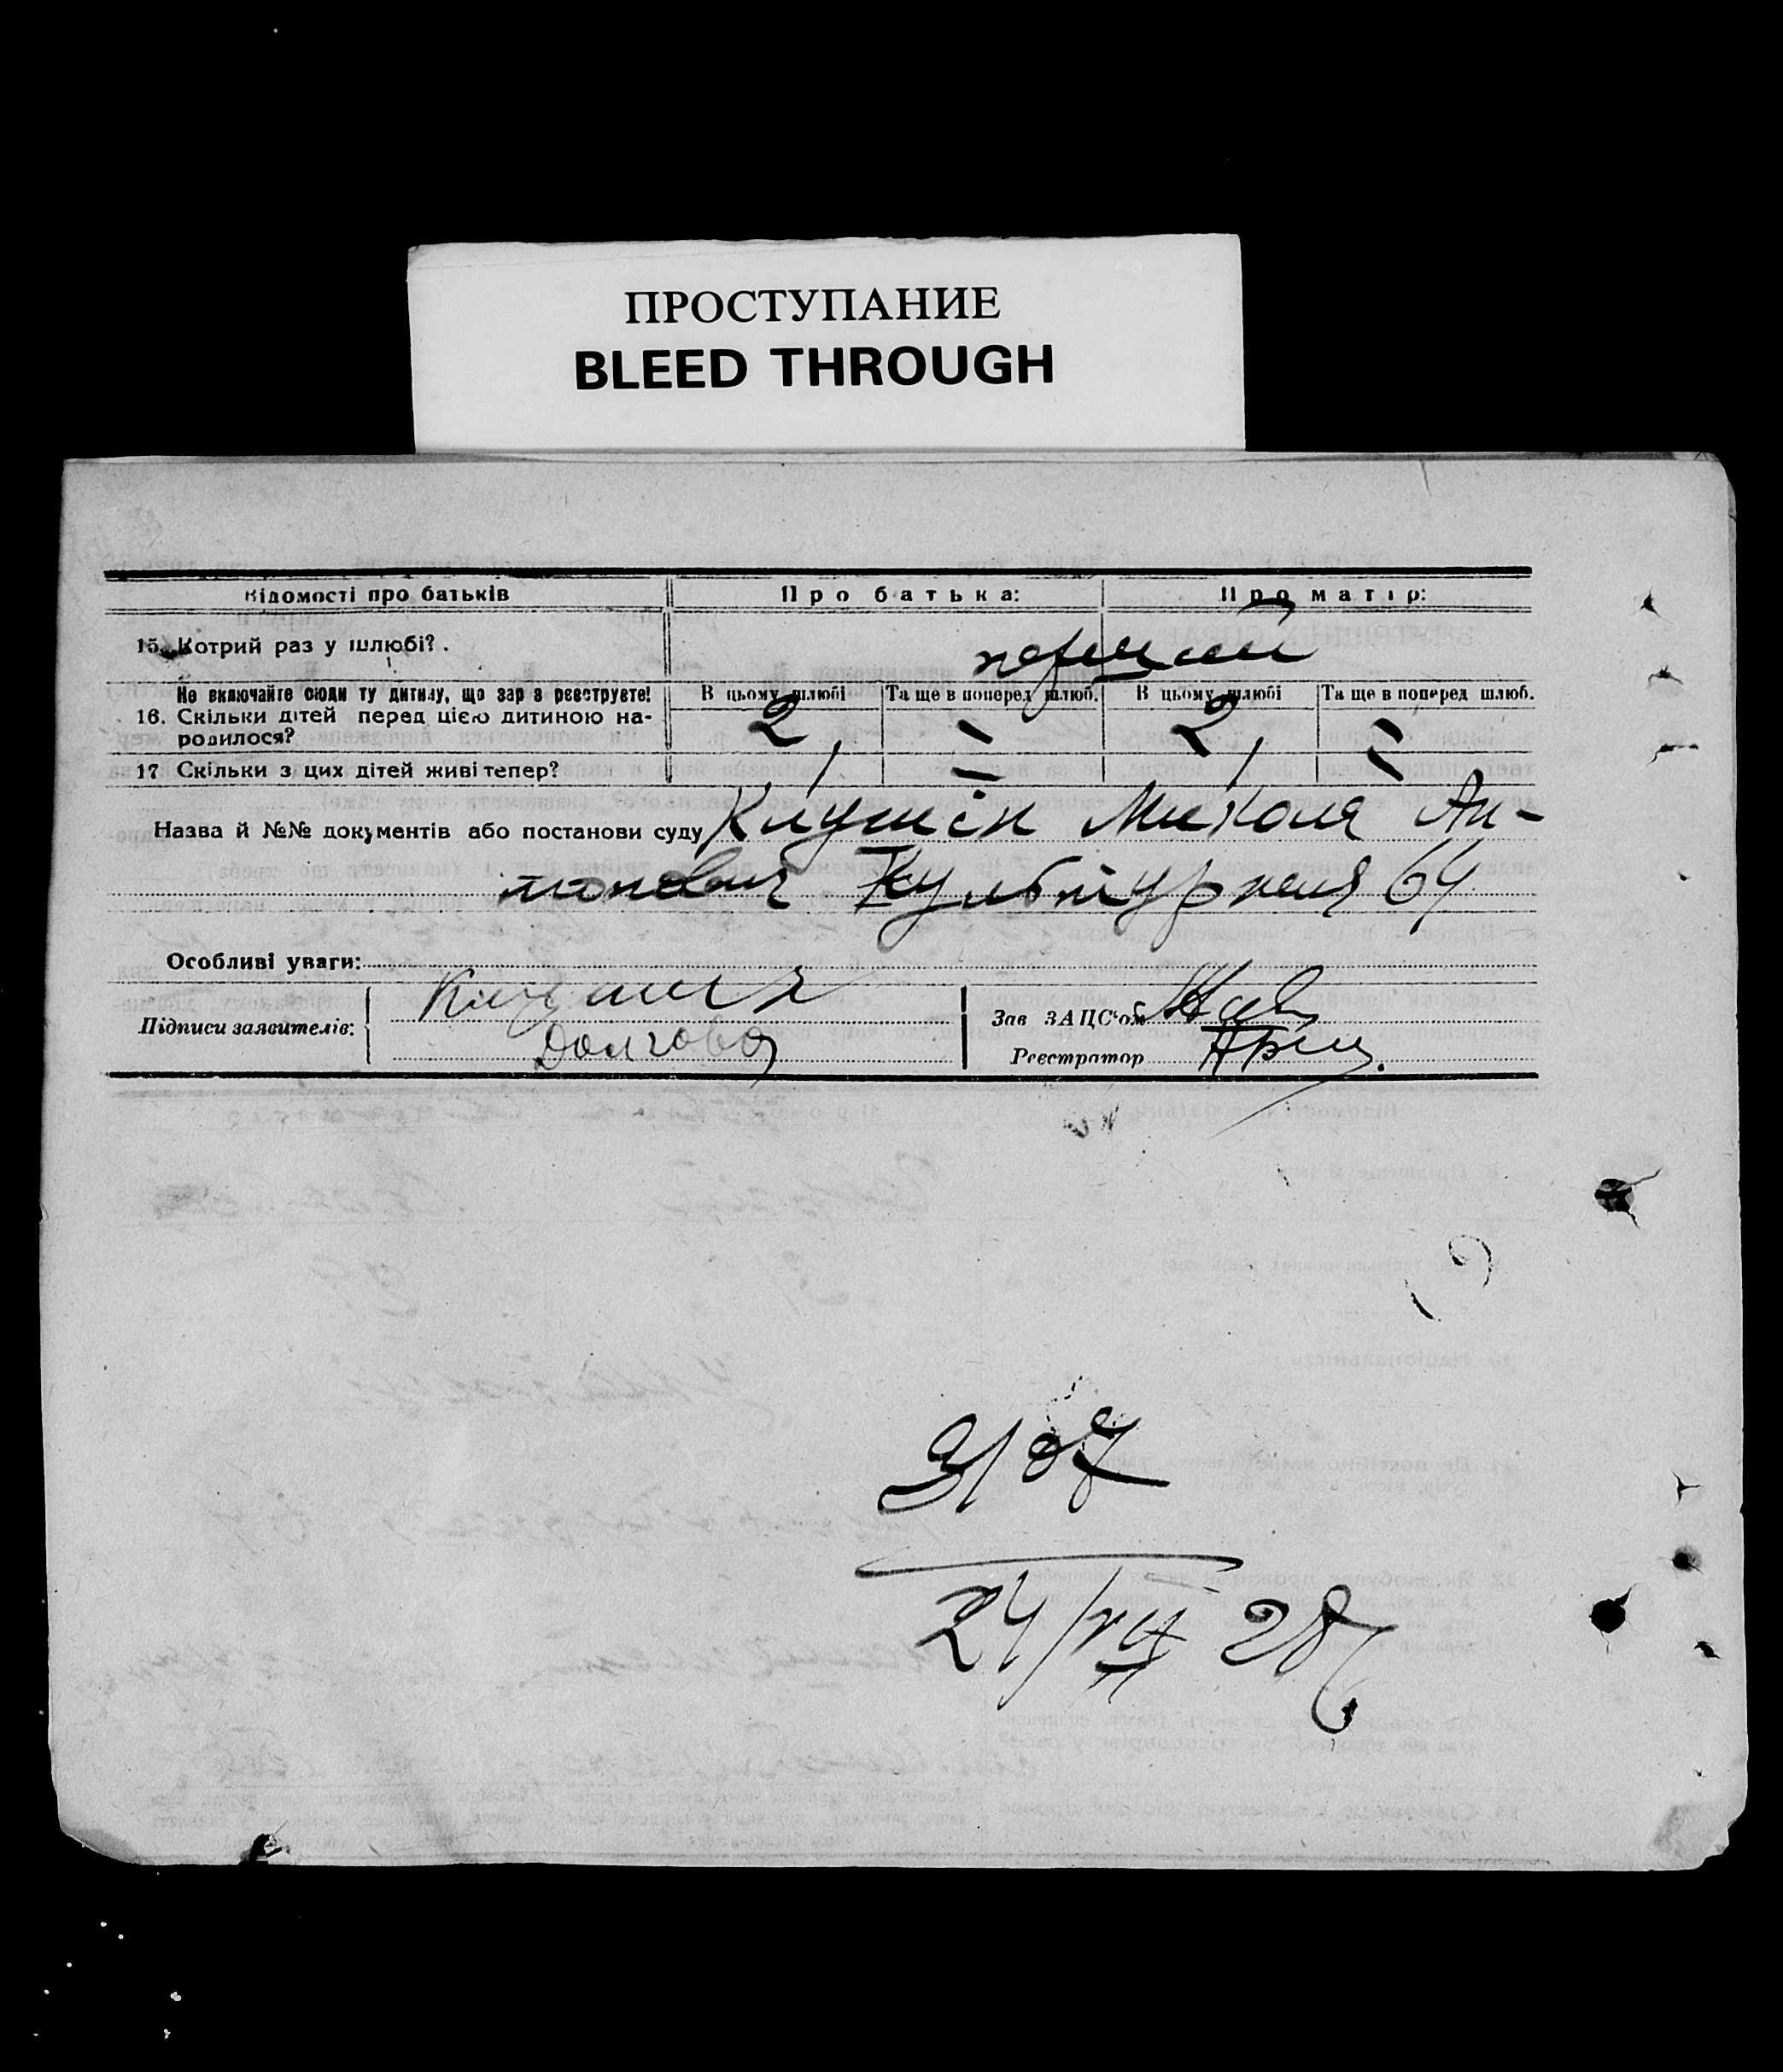 ПРОСТУПАНИЕ
BLEED THROUGH
Відомості про батьків Про батька: Про матір:
15. Котрий раз у шлюбі? . перший
Не включайте сюди ту дитину, що зараз реєструєте! В цьому шлюбі Та ще в поперед шлюб. В цьому шлюбі Та ще в поперед шлюб.
16. Скільки дітей перед цією дитиною на-
родилося? 2 - 2 -
17 Скільки з цих дітей живі тепер? 1 - 1 -
Назва й №№ документів або постанови суду Клушін Микола Ан-
тонович Культурная 64
Особливі уваги:
Підписи заявителів: Зав ЗАЦС'ом
Долгова Реєстратор
24/VII 28